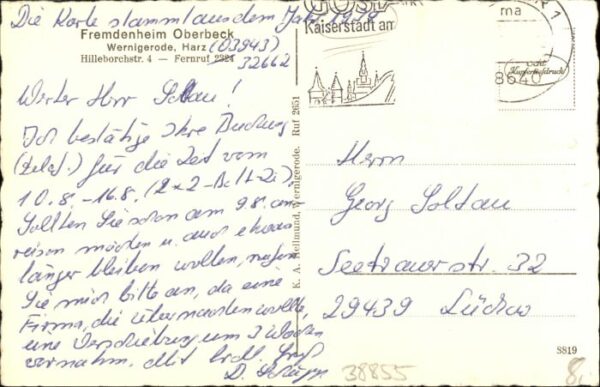 Die Karte stammt aus dem Jahr 1938
Fremdenheim Oberbeck
Wernigerode, Harz (03943)
Hilleborchstr. 4 — Fernruf 2324
32662
Werter Herr Soltau!
Ich bestätige Ihre Buchung
(telef.) für die Zeit vom
10.8.-16.8. (2x2-Bett-Zi).
Sollten Sie schon am 9.8. an-
reisen möchten u. auch etwas
länger bleiben wollen, rufen
Sie mich bitte an, da eine
Firma, die übernachten wollte,
eine Verschiebung um 3 Wochen
vornahm. Mit frdl. Gruß
D.
K. A. Hellmund, Wernigerode. Ruf 2651
Kaiserstadt am
rna
1
Echt
Kupfertiefdruck
8640
Herrn
Georg Soltau
32
29439 Lüchow
S819
38855
8,